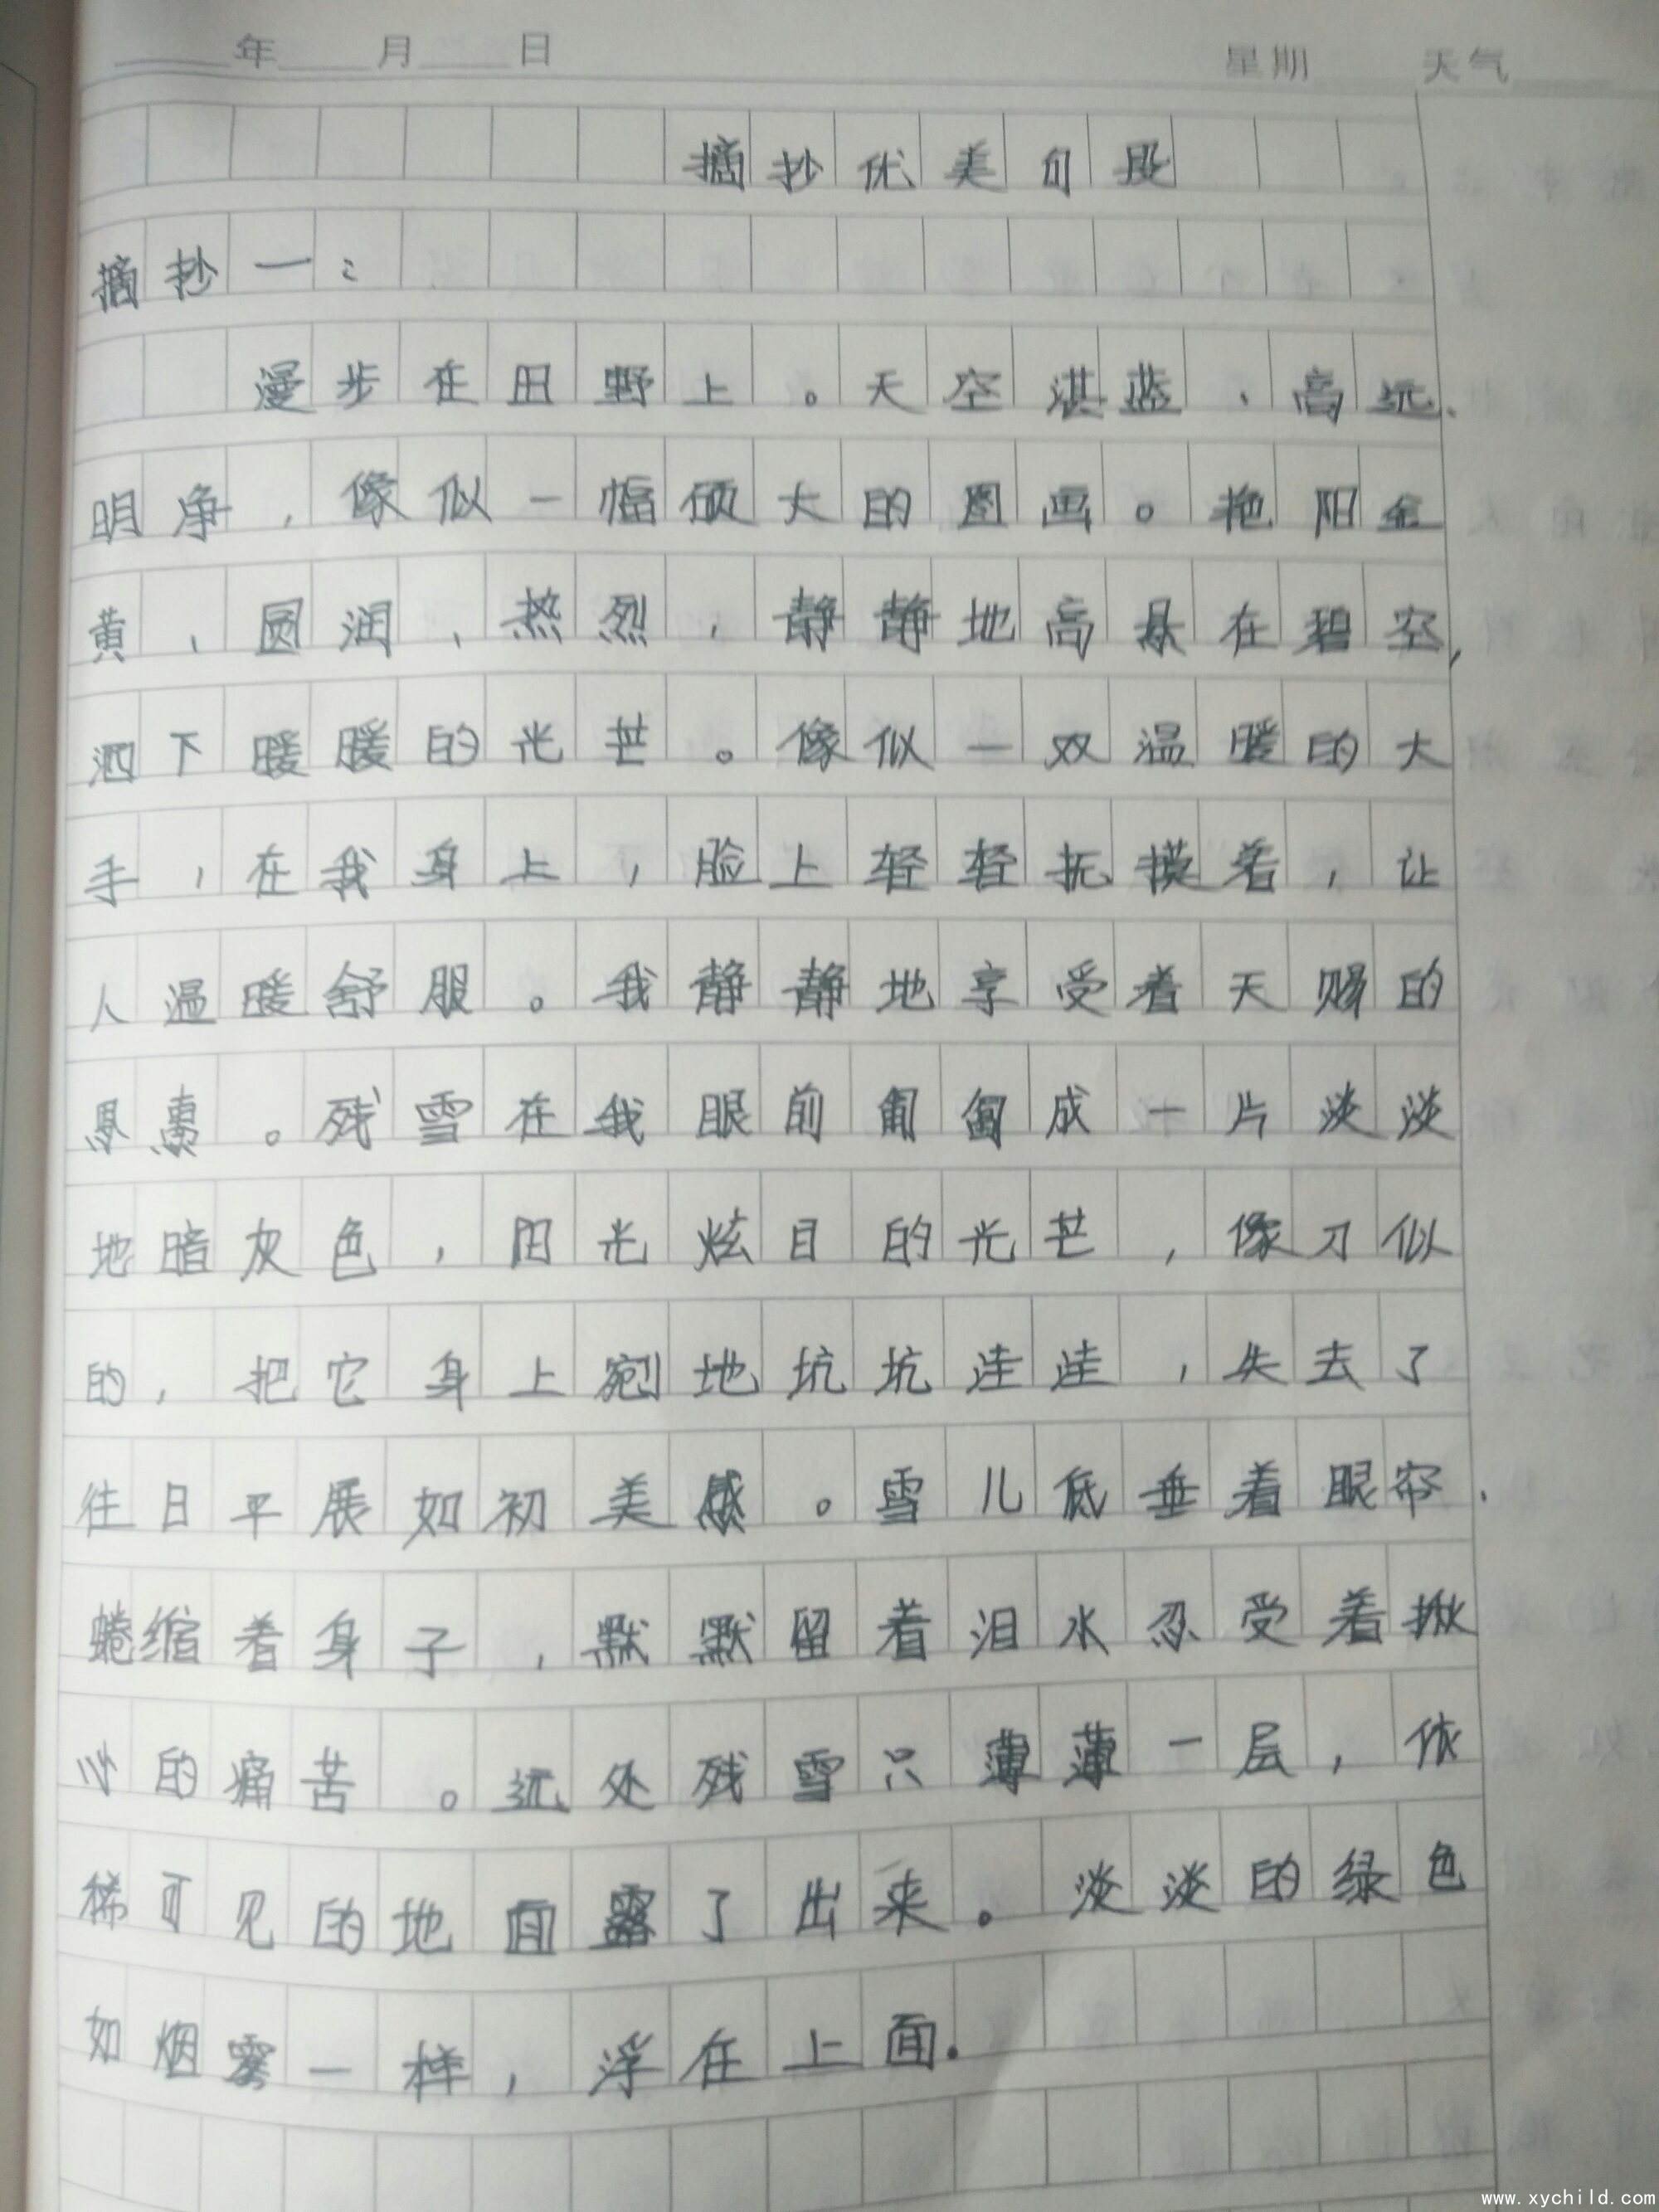 年 月 日 星期 天气
摘抄优美句段
摘抄一：
漫步在田野上。天空湛蓝、高远、
明净，像似一幅硕大的图画。艳阳金
黄，圆润，热烈，静静地高悬在碧空，
洒下暖暖的光芒。像似一双温暖的大
手，在我身上，脸上轻轻抚摸着，让
人温暖舒服。我静静地享受着天赐的
恩惠。残雪在我眼前匍匐成一片淡淡
地暗灰色，阳光炫目的光芒，像刀似
的，把它身上剜地坑坑洼洼，失去了
往日平展如初美感。雪儿低垂着眼帘.
蜷缩着身子，默默留着泪水忍受着揪
心的痛苦。远处残雪只薄薄一层，依
稀可见的地面露了出来。淡淡的绿色
如烟雾一样，浮在上面.
www.xychild.com